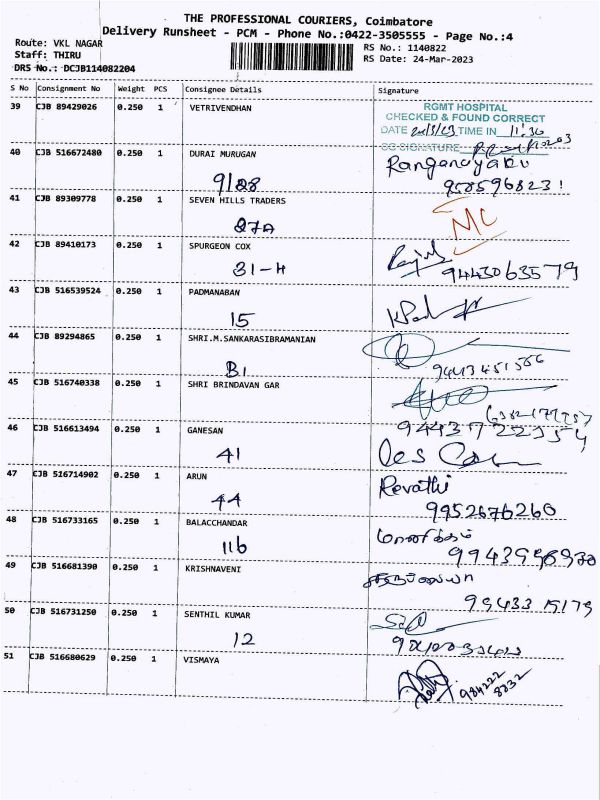 THE PROFESSIONAL COURIERS, Coimbatore
Delivery Runsheet - PCM - Phone No.:0422-3505555 - Page No.:4
Route: VKL NAGAR
RS No.: 1140822
Staff: THIRU
RS Date: 24-Mar-2023
DRS No.: DCJB114082204
S No Consignment No Weight PCS Consignee Details Signature
39 CJB 89429026 0.250 1 VETRIVENDHAN
RGMT HOSPITAL
CHECKED & FOUND CORRECT
DATE TIME IN 11:30
SIGNATURE
40 CJB 516672480 0.250 1 DURAI MURUGAN
Ranganayaki
9/28
41 CJB 89309778 0.250 1 SEVEN HILLS TRADERS
MC
87A
42 CJB 89410173 0.250 1 SPURGEON COX
31-H 9443063579
43 CJB 516539524 0.250 1 PADMANABAN
15
44 CJB 89294865 0.250 1 SHRI.M.SANKARASIBRAMANIAN
B1
45 CJB 516740338 0.250 1 SHRI BRINDAVAN GAR
46 CJB 516613494 0.250 1 GANESAN
41
47 CJB 516714902 0.250 1 ARUN
Revathi
44 9952676260
48 CJB 516733165 0.250 1 BALACCHANDAR
மாணிக்கம்
116
49 CJB 516681390 0.250 1 KRISHNAVENI
50 CJB 516731250 0.250 1 SENTHIL KUMAR
12
51 CJB 516680629 0.250 1 VISMAYA
984222
8832